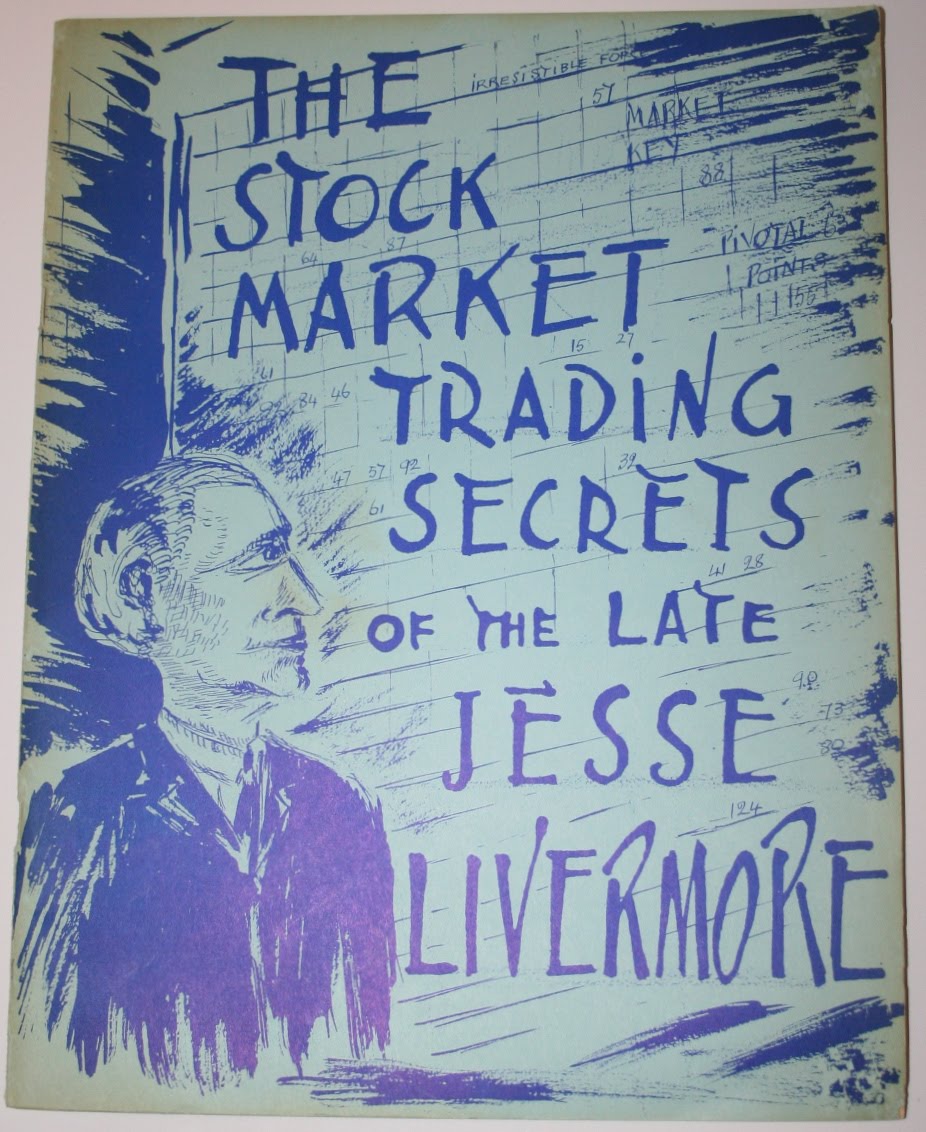 THE
IRRESISTIBLE FOR
57
MARKET
KEY
88
STOCK
PIVOTAL
POINTS
64 87
MARKET
15 27
61
84 46
TRADING
47 57 92
39
61
SECRETS
28
OF THE LATE
90
JESSE
73
80
124
LIVERMORE